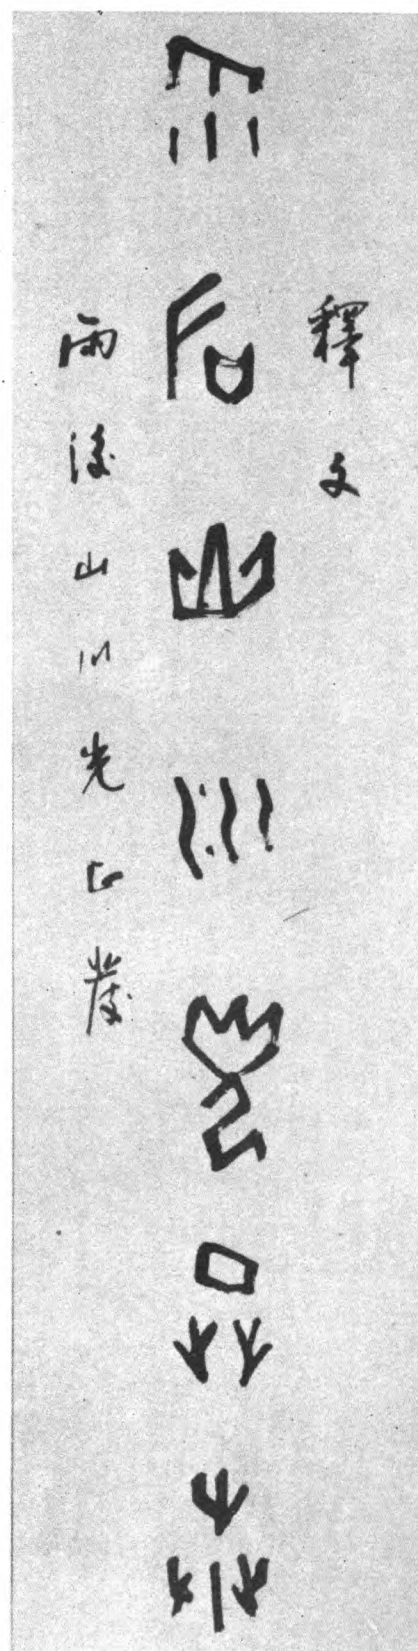 釋文
雨后山川光正發
雨後山川光正發